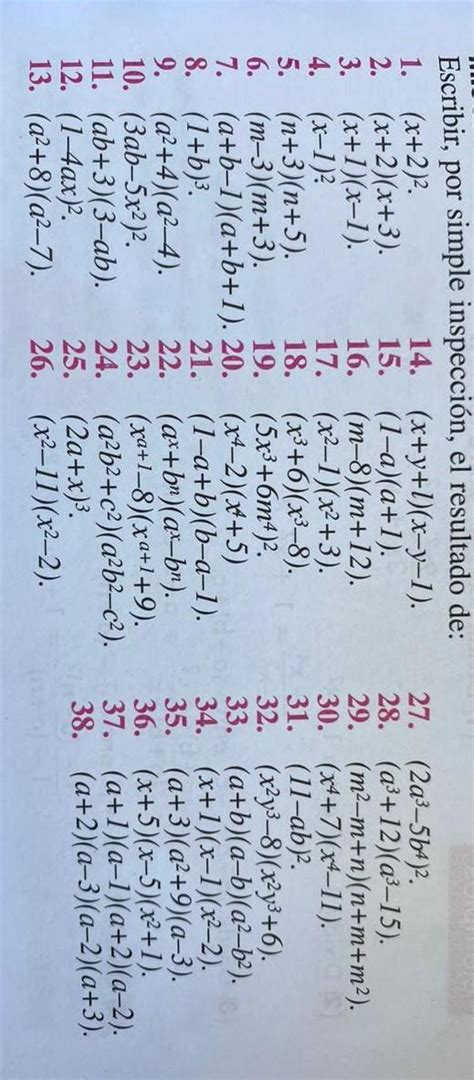 Escribir, por simple inspección, el resultado de:
1. (x+2)².
2. (x+2)(x+3).
3. (x+1)(x–1).
4. (x–1)².
5. (n+3)(n+5).
6. (m–3)(m+3).
7. (a+b–1)(a+b+1).
8. (1+b)³.
9. (a²+4)(a²–4).
10. (3ab–5x²)².
11. (ab+3)(3–ab).
12. (1–4ax)².
13. (a²+8)(a²–7).
14. (x+y+l)(x–y–1).
15. (1–a)(a+1).
16. (m–8)(m+12).
17. (x²–1)(x²+3).
18. (x³+6)(x³–8).
19. (5x³+6m⁴)².
20. (x⁴–2)(x⁴+5)
21. (1–a+b)(b–a–1).
22. (aˣ+bⁿ)(aˣ–bⁿ).
23. (xᵃ⁺¹–8)(xᵃ⁺¹+9).
24. (a²b²+c²)(a²b²–c²).
25. (2a+x)³.
26. (x²–11)(x²–2).
27. (2a³–5b⁴)².
28. (a³+12)(a³–15).
29. (m²–m+n)(n+m+m²).
30. (x⁴+7)(x⁴–11).
31. (11–ab)².
32. (x²y³–8)(x²y³+6).
33. (a+b)(a–b)(a²–b²).
34. (x+1)(x–1)(x²–2).
35. (a+3)(a²+9)(a–3).
36. (x+5)(x–5(x²+1).
37. (a+1)(a–1)(a+2)(a–2).
38. (a+2)(a–3)(a–2)(a+3).